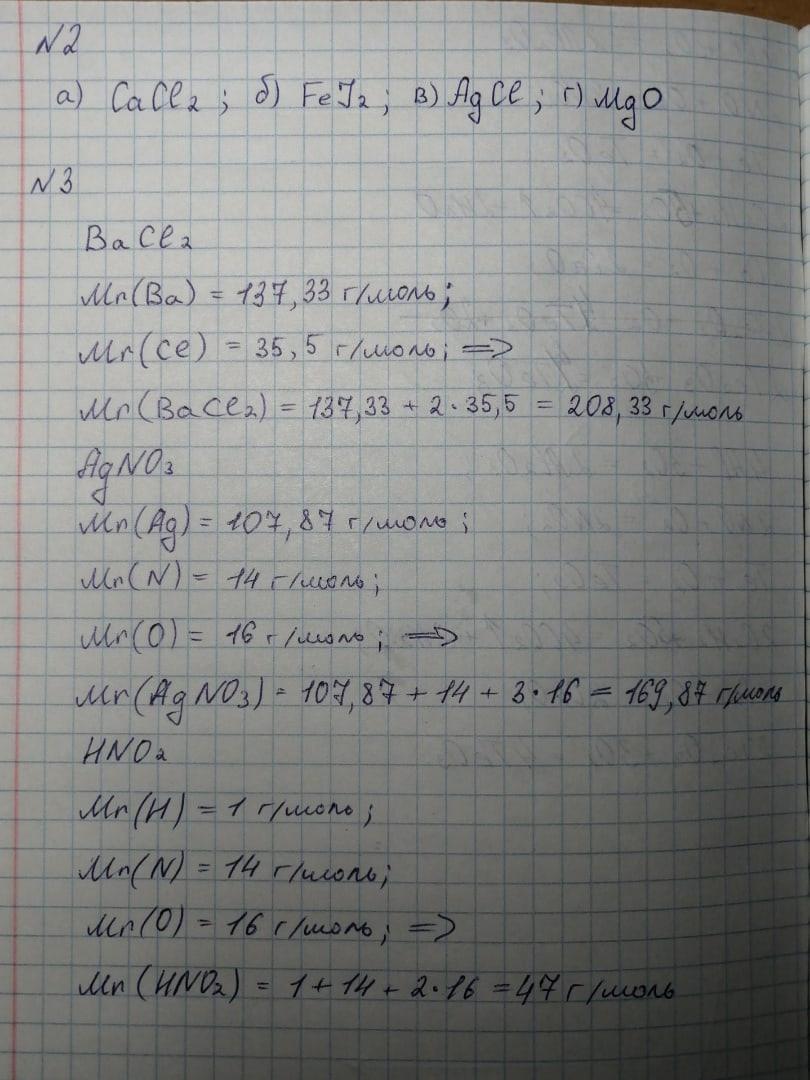 N2
а) CaCl₂ ; б) FeI₂ ; в) AgCl ; г) MgO
N3
BaCl₂
Mr(Ba) = 137,33 г/моль;
Mr(Cl) = 35,5 г/моль; =>
Mr(BaCl₂) = 137,33 + 2·35,5 = 208,33 г/моль
AgNO₃
Mr(Ag) = 107,87 г/моль;
Mr(N) = 14 г/моль;
Mr(O) = 16 г/моль; =>
Mr(AgNO₃) = 107,87 + 14 + 3·16 = 169,87 г/моль
HNO₂
Mr(H) = 1 г/моль;
Mr(N) = 14 г/моль;
Mr(O) = 16 г/моль; =>
Mr(HNO₂) = 1 + 14 + 2·16 = 47 г/моль